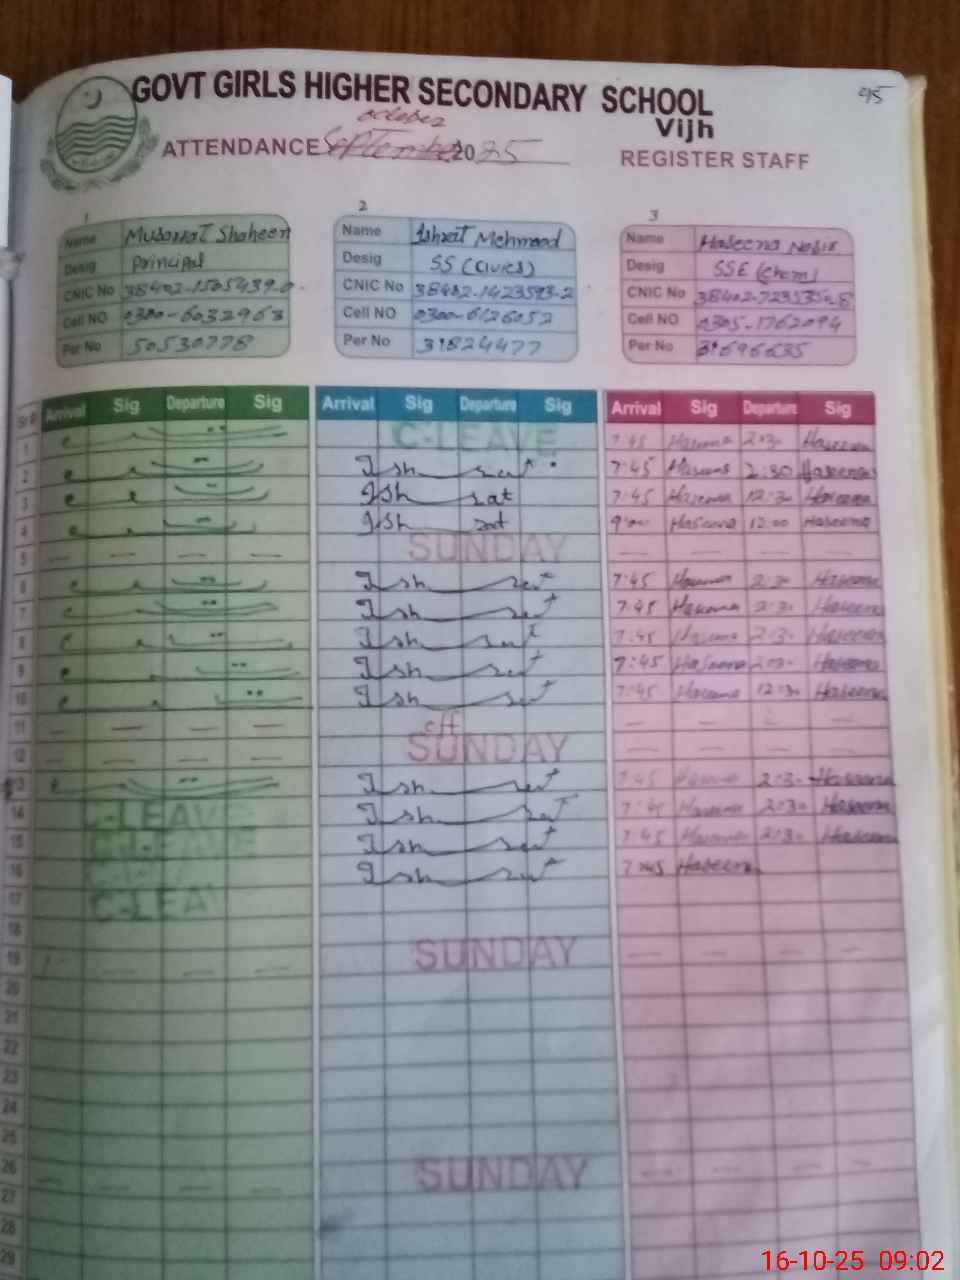 GOVT GIRLS HIGHER SECONDARY SCHOOL
Vijh
95
October
ATTENDANCE September 2025 REGISTER STAFF
1 2 3
Name Musarrat Shaheen
Desig Principal
CNIC No 38402-1505439-0
Cell NO 0300-6032963
Per No 50530778
Name Ishrat Mehmood
Desig SS (Civics)
CNIC No 38402-1423593-2
Cell NO 0300-6126052
Per No 31824477
Name Haseena Nasir
Desig SSE (Chem)
CNIC No 38402-7235350-8
Cell NO 0305-1762094
Per No 31696635
Sr # Arrival Sig Departure Sig Arrival Sig Departure Sig Arrival Sig Departure Sig
1 C-LEAVE 7:45 Haseena 2:30 Haseena
2 Ishrat 7:45 Haseena 2:30 Haseena
3 Ishrat 7:45 Haseena 12:30 Haseena
4 Ishrat 9:00 Haseena 12:00 Haseena
5 — — — — SUNDAY — — — —
6 Ishrat 7:45 Haseena 2:30 Haseena
7 Ishrat 7:45 Haseena 2:30 Haseena
8 Ishrat 7:45 Haseena 2:30 Haseena
9 Ishrat 7:45 Haseena 2:30 Haseena
10 Ishrat 7:45 Haseena 12:30 Haseena
11 — — — — off — — — —
12 — — — — SUNDAY — — — —
13 Ishrat 7:45 Haseena 2:30 Haseena
14 C-LEAVE Ishrat 7:45 Haseena 2:30 Haseena
15 C-LEAVE Ishrat 7:45 Haseena 2:30 Haseena
16 Ishrat 7:45 Haseena
17 C-LEAV
18
19 — — — SUNDAY — — — —
20
21
22
23
24
25
26 — — — — SUNDAY — — — —
27
28
29
16-10-25 09:02